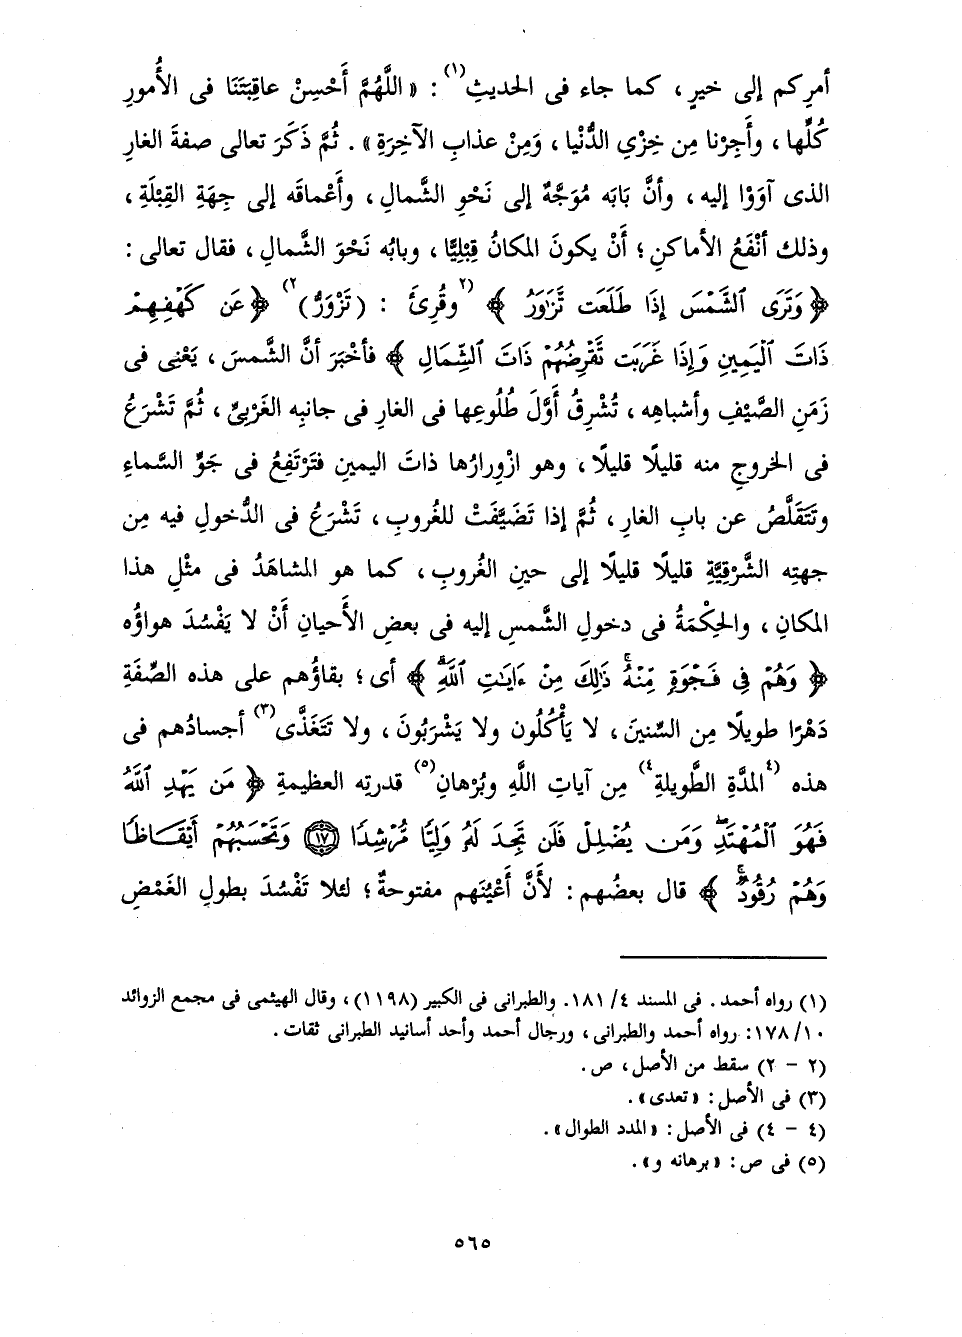 أمرِكم إلى خيرٍ ، كما جاء فى الحديثِ(١) : « اللَّهُمَّ أَحْسِنْ عاقِبَتَنَا فى الأُمورِ
كُلِّها ، وأَجِرْنا مِن خِزْيِ الدُّنْيا ، وَمِنْ عذابِ الآخِرَةِ » . ثُمَّ ذَكَرَ تعالى صفةَ الغارِ
الذى آوَوْا إليه ، وأنَّ بَابَه مُوَجَّهٌ إلى نَحْوِ الشَّمالِ ، وأَعْماقَه إلى جِهَةِ القِبْلَةِ ،
وذلك أَنْفَعُ الأماكنِ ؛ أَنْ يكونَ المكانُ قِبْلِيًّا ، وبابُه نَحْوَ الشَّمالِ ، فقال تعالى :
﴿ وَتَرَى ٱلشَّمْسَ إِذَا طَلَعَت تَّزَٰوَرُ ﴾ (٢وقُرِئَ : ( تَزْوَرُّ )٢) ﴿ عَن كَهْفِهِمْ
ذَاتَ ٱلْيَمِينِ وَإِذَا غَرَبَت تَّقْرِضُهُمْ ذَاتَ ٱلشِّمَالِ ﴾ فأَخْبَرَ أنَّ الشَّمسَ ، يَعْنِى فى
زَمَنِ الصَّيْفِ وأشباهِه ، تُشْرِقُ أَوَّلَ طُلُوعِها فى الغارِ فى جانبِه الغَرْبِىِّ ، ثُمَّ تَشْرَعُ
فى الخروجِ منه قليلًا قليلًا ، وهو ازْوِرارُها ذاتَ اليمينِ فتَرْتَفِعُ فى جَوِّ السَّماءِ
وتَتَقَلَّصُ عن بابِ الغارِ ، ثُمَّ إذا تَضَيَّفَتْ للغُروبِ ، تَشْرَعُ فى الدُّخولِ فيه مِن
جهتِه الشَّرْقِيَّةِ قليلًا قليلًا إلى حينِ الغُروبِ ، كما هو المشاهَدُ فى مثْلِ هذا
المكانِ ، والحِكْمَةُ فى دخولِ الشَّمسِ إليه فى بعضِ الأَحيانِ أَنْ لا يَفْسُدَ هواؤُه
﴿ وَهُمْ فِى فَجْوَةٍ مِّنْهُ ۚ ذَٰلِكَ مِنْ ءَايَٰتِ ٱللَّهِ ۗ ﴾ أى ؛ بقاؤُهم على هذه الصِّفَةِ
دَهْرًا طويلًا مِن السِّنينَ ، لا يَأْكُلُون ولا يَشْرَبُونَ ، ولا تَتَغَذَّى(٣) أجسادُهم فى
هذه (٤المدَّةِ الطَّويلةِ٤) مِن آياتِ اللَّهِ وبُرْهانِ(٥) قدرتِه العظيمةِ ﴿ مَن يَهْدِ ٱللَّهُ
فَهُوَ ٱلْمُهْتَدِ ۖ وَمَن يُضْلِلْ فَلَن تَجِدَ لَهُۥ وَلِيًّا مُّرْشِدًا ﴿١٧﴾ وَتَحْسَبُهُمْ أَيْقَاظًا
وَهُمْ رُقُودٌ ۚ ﴾ قال بعضُهم : لأَنَّ أَعْيُنَهم مفتوحةٌ ؛ لئلا تَفْسُدَ بطولِ الغَمْضِ
(١) رواه أحمد . فى المسند ٤/ ١٨١. والطبرانى فى الكبير (١١٩٨) ، وقال الهيثمى فى مجمع الزوائد
١٠/ ١٧٨: رواه أحمد والطبرانى ، ورجال أحمد وأحد أسانيد الطبرانى ثقات .
(٢ - ٢) سقط من الأصل ، ص .
(٣) فى الأصل : « تعدى » .
(٤ - ٤) فى الأصل : « المدد الطوال » .
(٥) فى ص : « برهانه و » .
٥٦٥